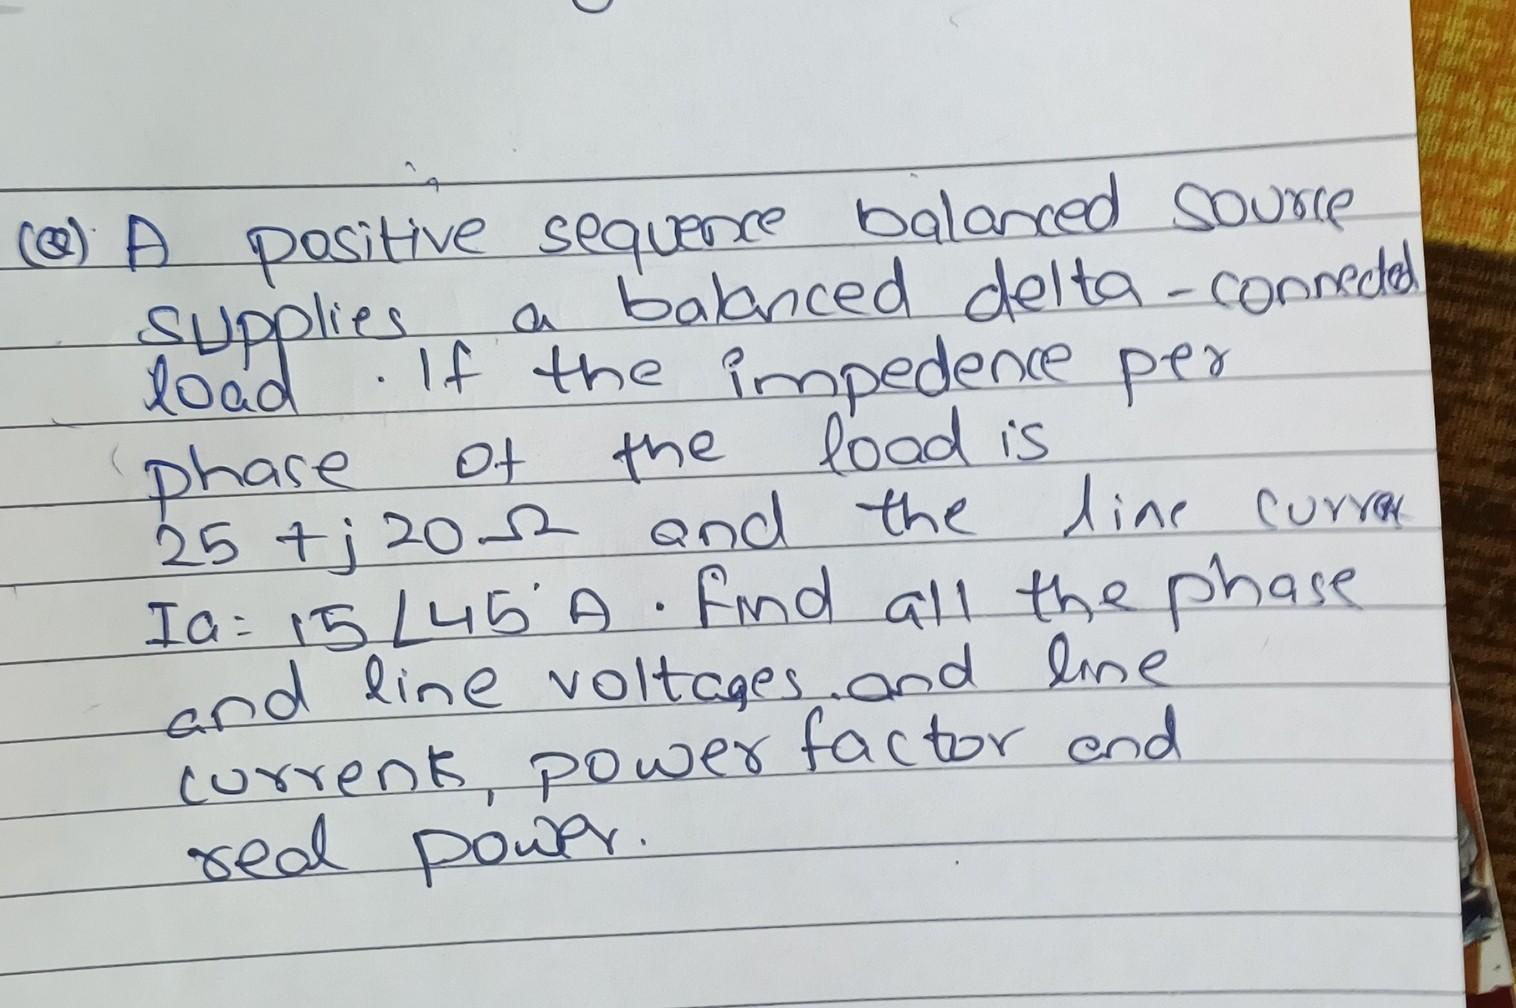 (Q). A positive sequence balanced source
supplies a balanced delta-connected
load. If the impedence per
phase of the load is
25 + j 20 Ω and the line
Ia= 15 ∠45° A. find all the phase
and line voltages and line
currents, power factor and
real power.